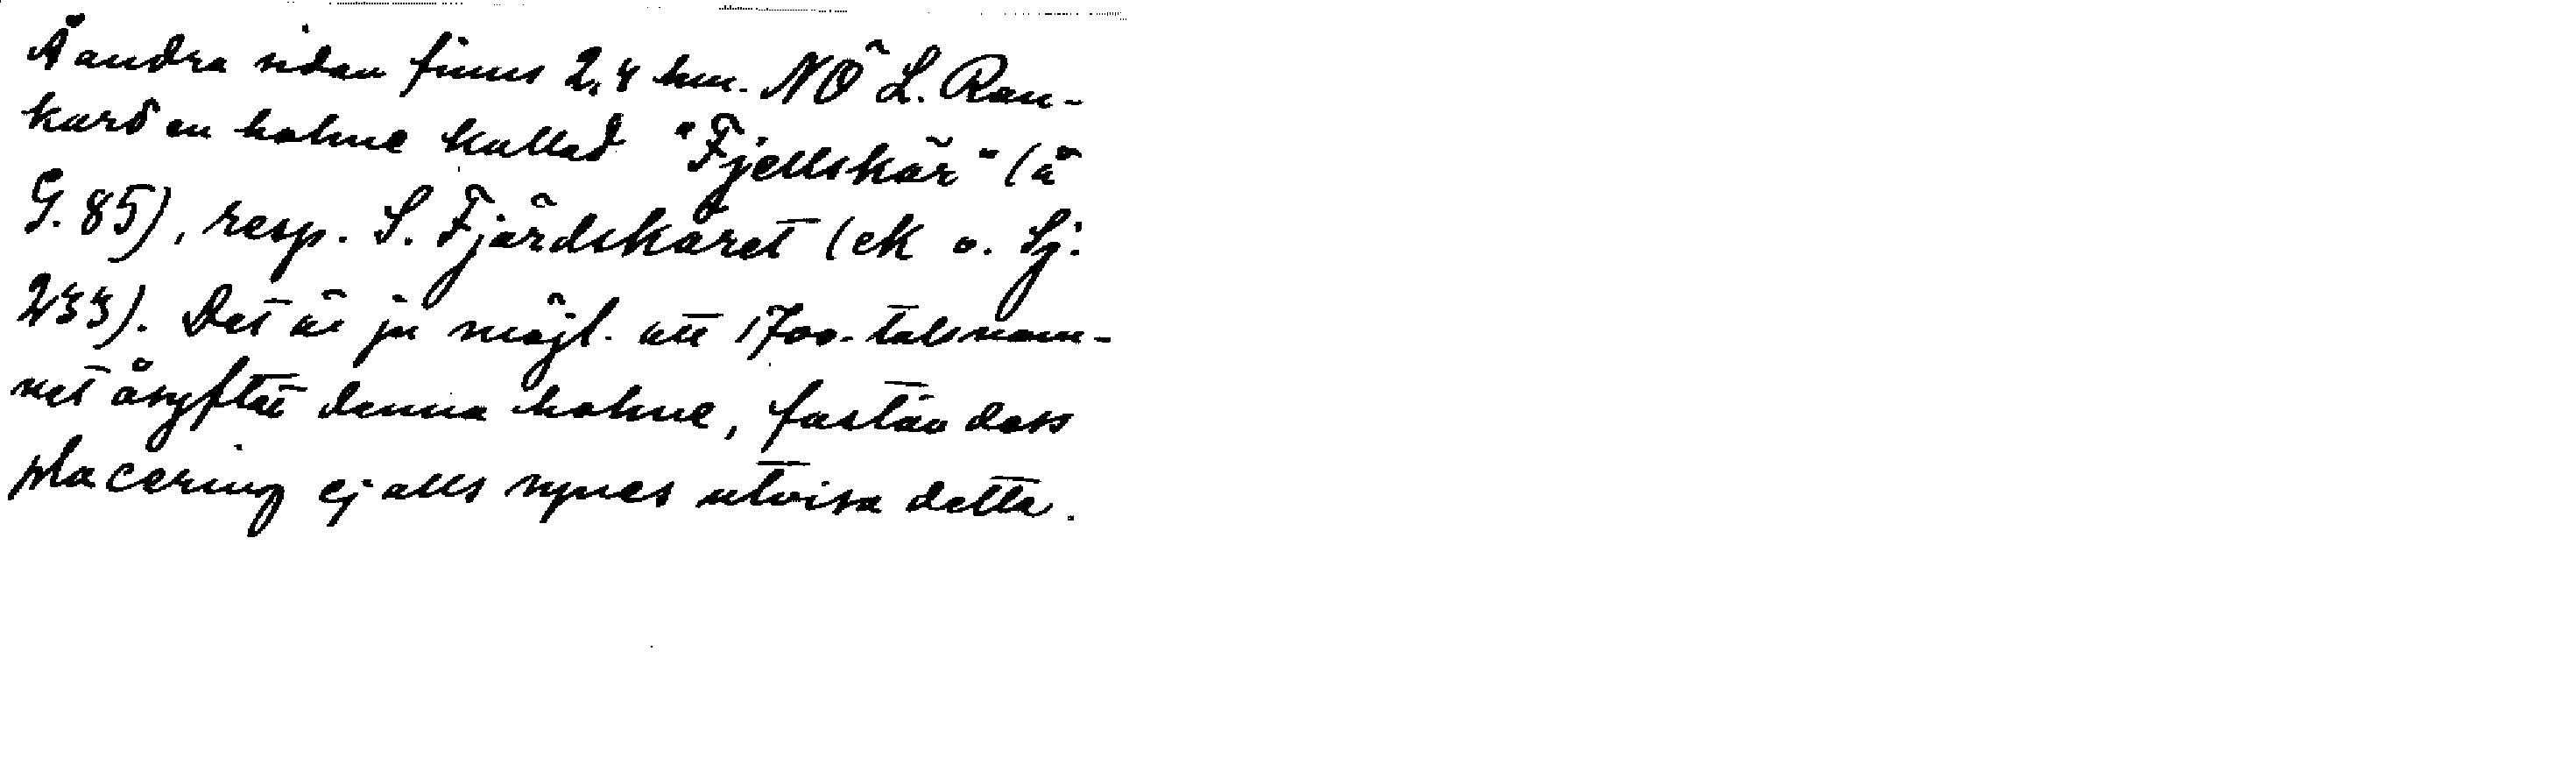 Å andra sidan finns 2,4 km. NÖ L. Ran-
karö en holme kallad "Fjellskär" (å
G. 85), resp. S. Fjärdskäret (ek o. Sj.
233). Det är ju möjl. att 1700-talsnam-
net åsyftat denna holme, fastän dess
placering ej alls synes utvisa detta.